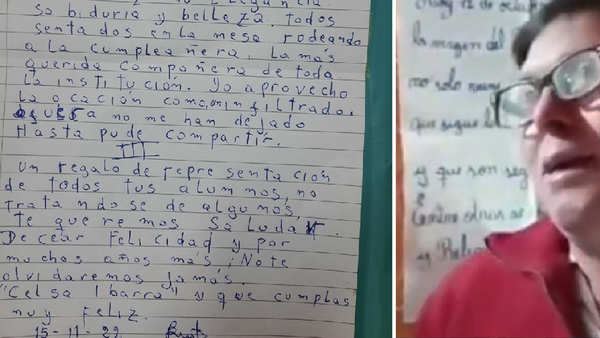 sabiduría y belleza. todos
sentados en la mesa rodeando
a la cumpleañera, la más
querida compañera de toda
la institución. Yo aprovecho
la ocación como un filtrado,
no me han dejado
Hasta pude compartir.
III
un regalo de representación
de todos tus alumnos, no
tratandose de algunos,
te queremos saludar.
Decear Felicidad y por
muchos años más ¡No te
olvidaremos jamás.
"Celsa Ibarra" y que cumplas
muy Feliz.
15-11-22
12 de octu
la imagen del
no solo
que sigue
y que son seg
y